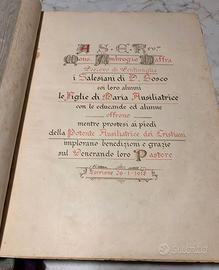 A S. E. Rev.
Mons. Ambrogio Daffra
Vescovo di Ventimiglia
i Salesiani di D. Bosco
coi loro alunni
le Figlie di Maria Ausiliatrice
con le educande ed alunne
offrono
mentre prostesi ai piedi
della Potente Ausiliatrice dei Cristiani
implorano benedizioni e grazie
sul Venerando loro Pastore
26-1-1918
subito